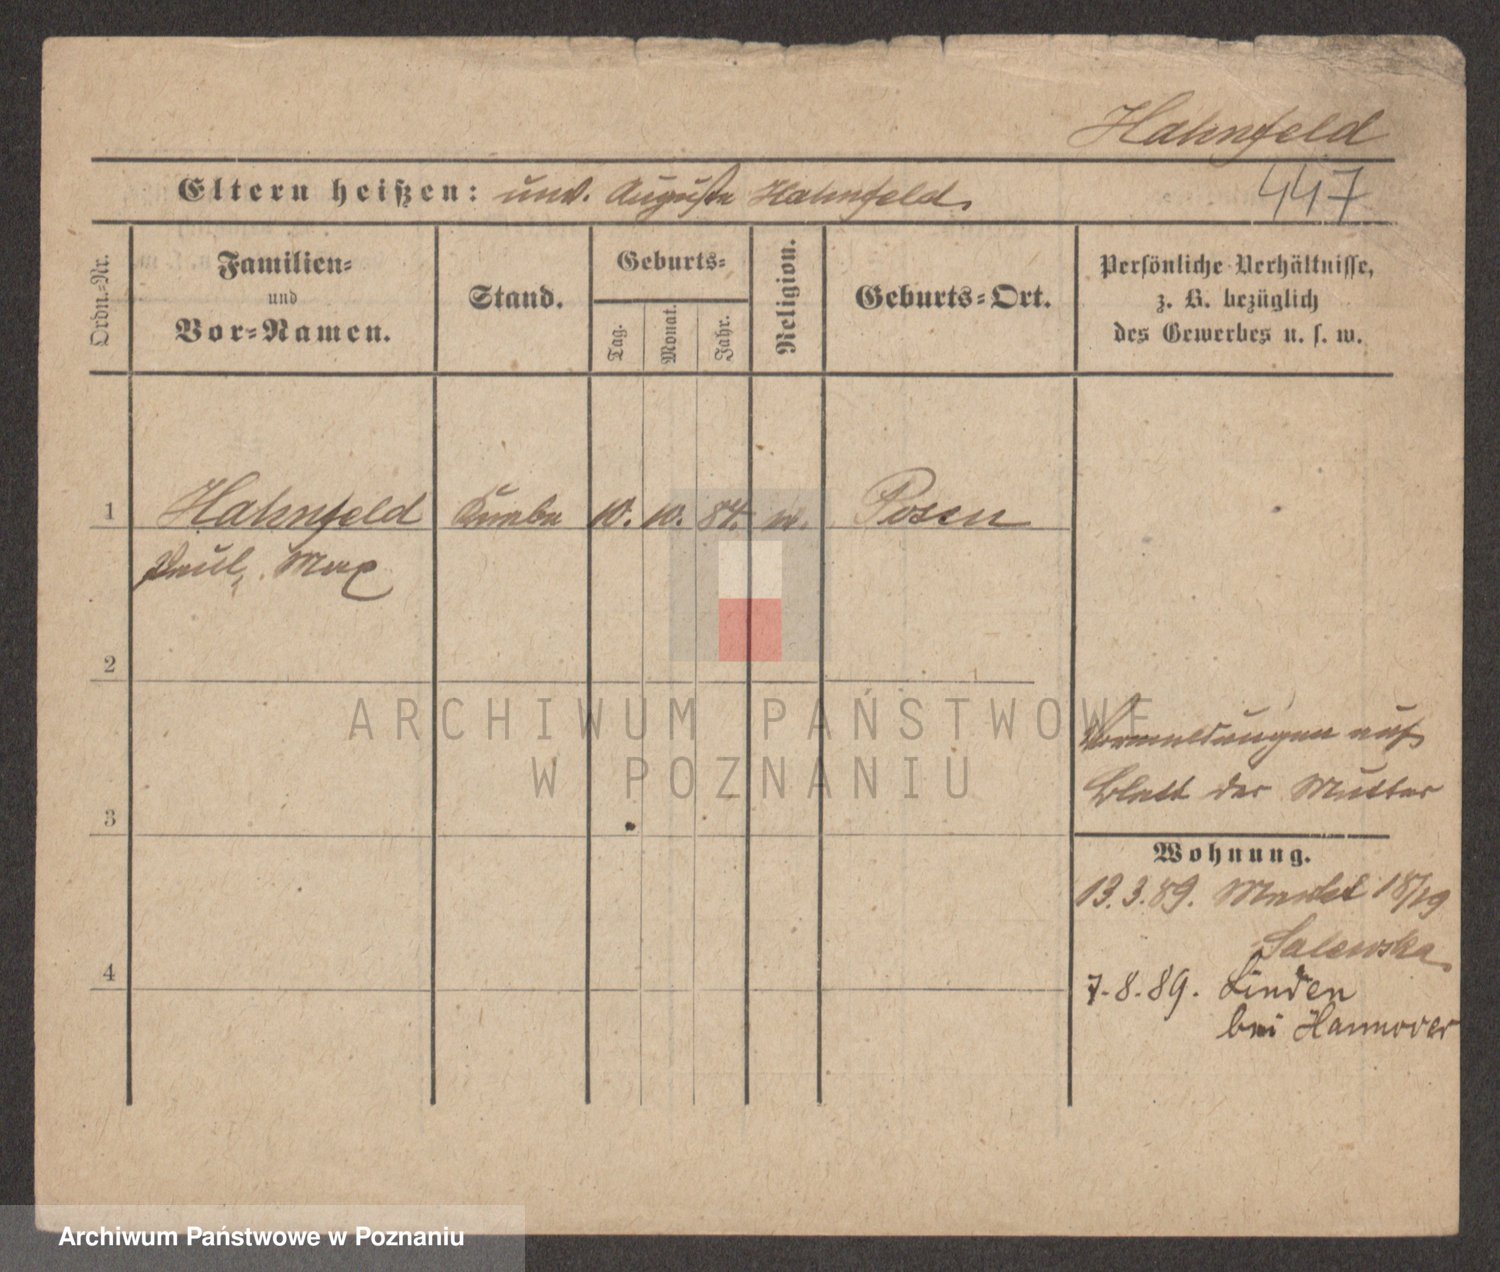 Hahnfeld
Eltern heißen: unv. Auguste Hahnfeld.
447
Ordn.-Nr.
Familien-
und
Vor-Namen.
Stand.
Geburts-
Tag.
Monat.
Jahr.
Religion.
Geburts-Ort.
Persönliche Verhältnisse,
z. B. bezüglich
des Gewerbes u. s. w.
1 Hahnfeld Knabe 10. 10. 84. Posen
Paul, Max
2
ARCHIWUM PAŃSTWOWE
W POZNANIU
Vormeldungen auf
Blatt der Mutter
3
Wohnung.
13.3.89. Markt 18/19
Salewska.
4
7.8.89. Linden
bei Hannover
Archiwum Państwowe w Poznaniu